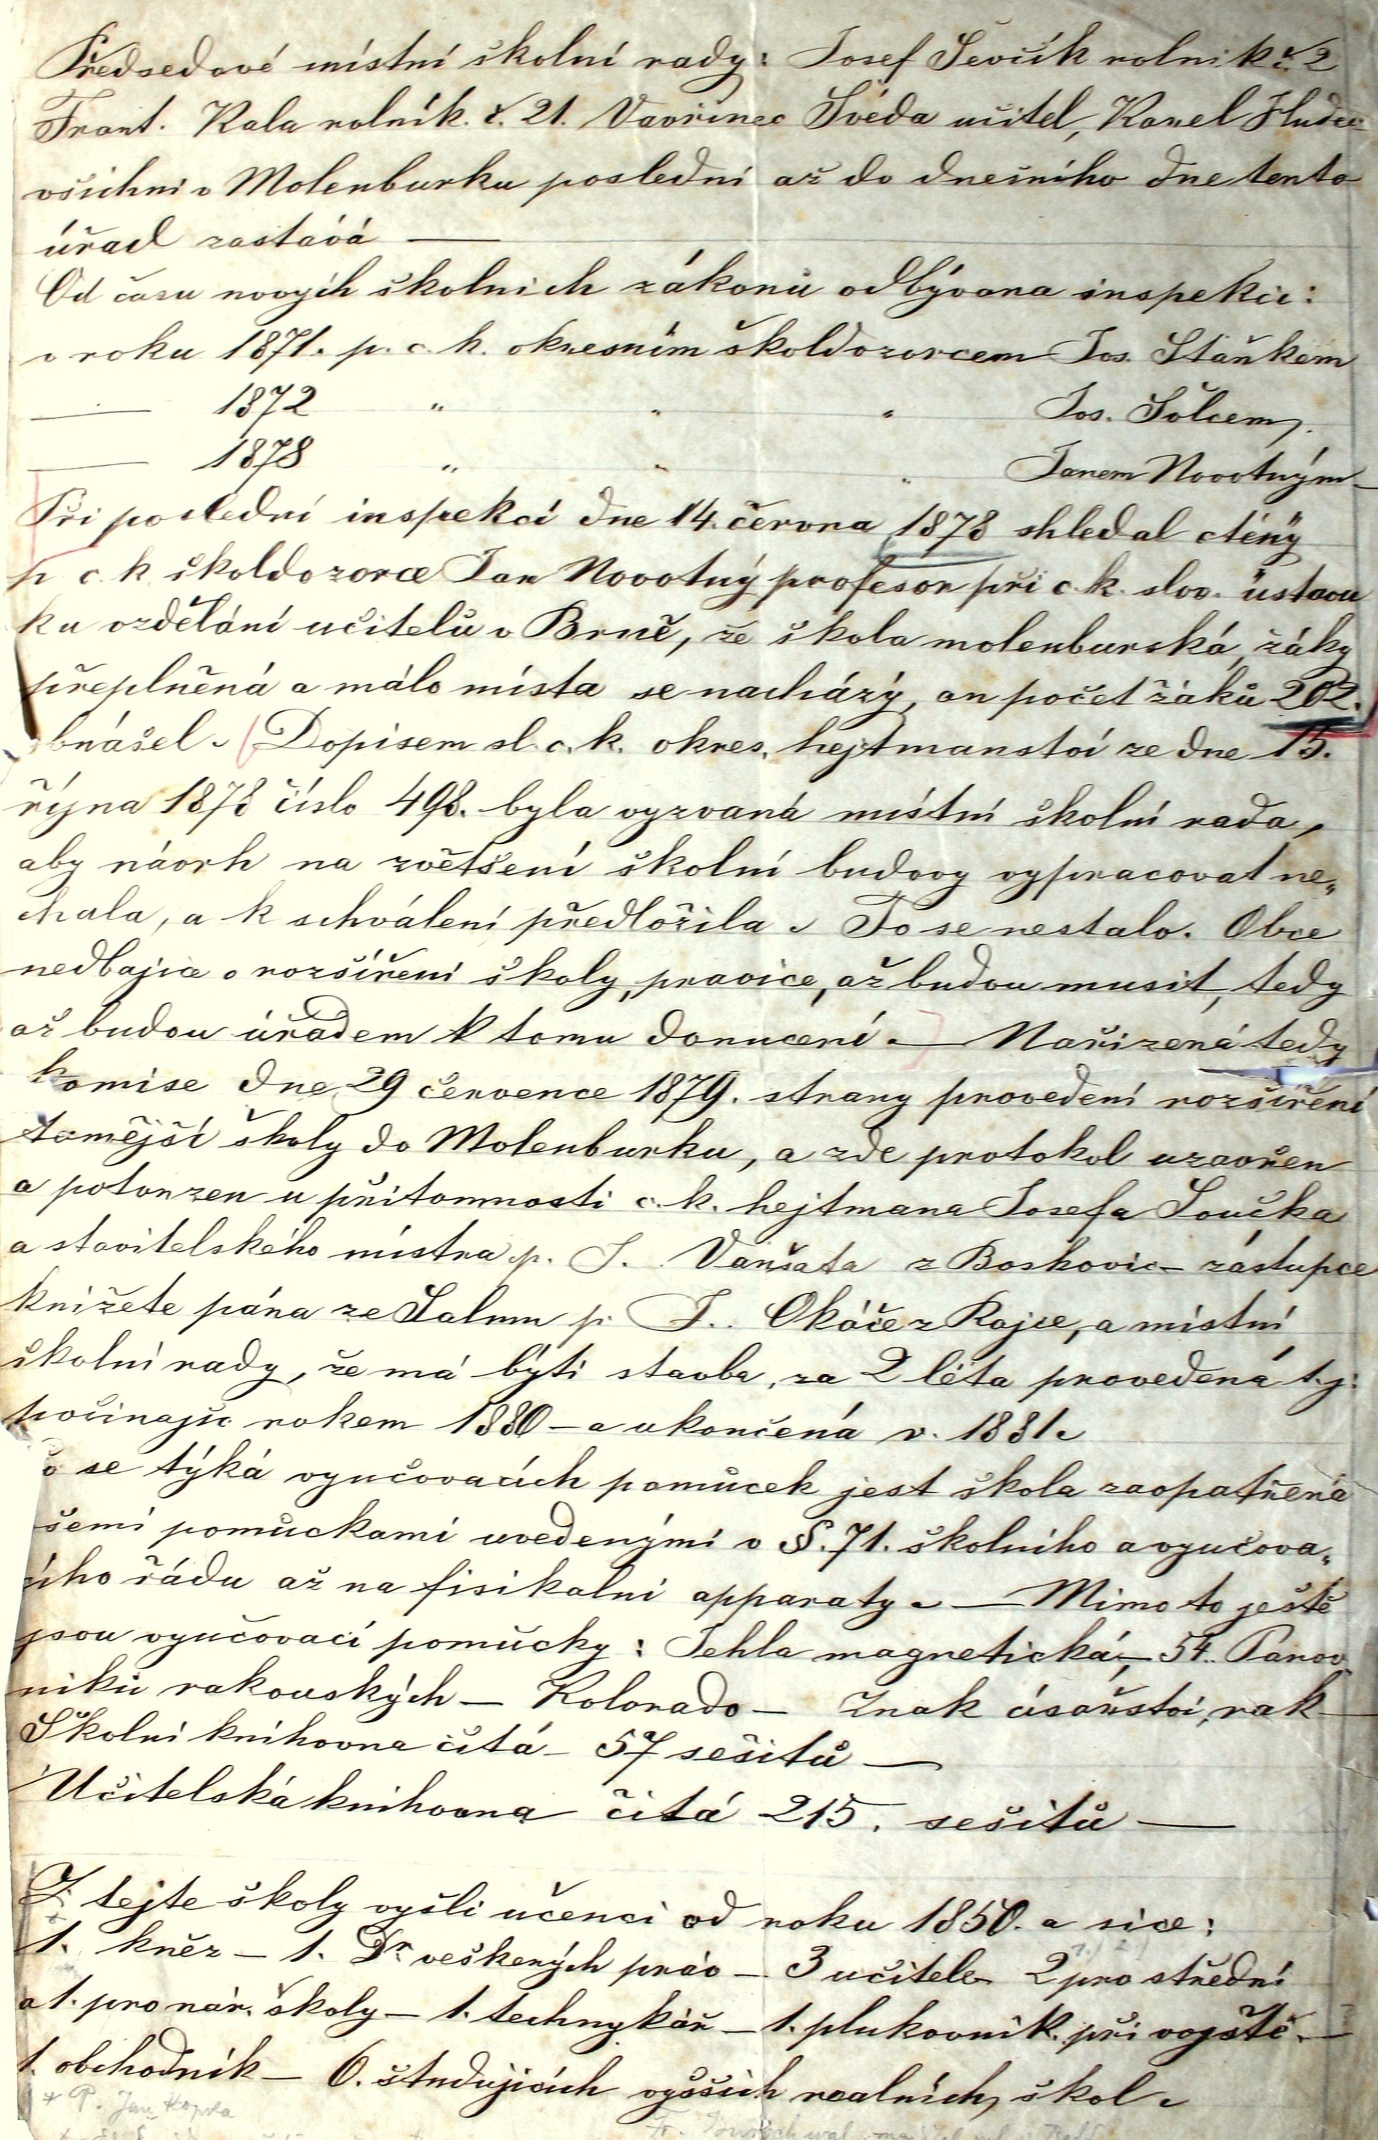 Předsedové místní školní rady: Josef Ševčík rolník č. 2
Frant. Kala rolník. č. 21. Vavřinec Švéda učitel, Karel Hudec
všichni v Molenburku poslední až do dnešního dne tento
úřad zastává —
Od času nových školních zákonů odbývana inspekce:
v roku 1871. p. c. k. okresním školdozorcem Jos. Staňkem
— 1872 " " " Jos. Šolcem.
— 1878 " " " Janem Novotným—
Při poslední inspekcí dne 14. června 1878 shledal ctěný
p c. k školdozorce Jan Novotný profesor při c. k. slov. ústavu
ku vzdělání učitelů v Brně, že škola molenburská, žáky
přeplněná a málo místa se nacházý, an počet žáků 202.
obnášel. (Dopisem sl. c. k. okres. hejtmanství ze dne 15.
října 1878 číslo 498. byla vyzvaná místní školní rada,
aby návrh na zvětšení školní budovy vypracovat ne„
chala, a k schválení předložila. To se nestalo. Obce
nedbajíce o rozšíření školy, pravíce, až budou musit, tedy
až budou úřadem k tomu donuceni. — Nařizená tedy
komise dne 29 července 1879. strany provedení rozšíření
tamější školy do Molenburku, a zde protokol uzavřen
a potvrzen u přitomnosti c. k. hejtmana Josefa Součka
a stavitelského místra p. J. Varšata z Boskovic— zástupce
knížete pána ze Salmu p. J. Okáče z Rajce, a místní
školní rady, že má býti stavba, za 2 léta provedená t. j:
počínajíc rokem 1880 — a ukončená v. 1881.
o se týká vyučovacích pomůcek jest škola zaopatřená
šemi pomůckami uvedenými v §. 71. školního a vyučova„
cího řádu až na fisikalní apparaty. — Mimo to ještě
jsou vyučovací pomůcky: Jehla magnetická, — 54. Panov
níků rakouských — Kolorado — Znak císařství rak—
Školní knihovna čítá — 57 sešitů —
Učitelská knihovna čitá 215. sešitů —
Z tejte školy vyšli učenci od roku 1850. a sice:
1. kněz — 1. Dr. veškerých práv — 3 učitele 2 pro střední
a 1. pro nár. školy — 1. technykář — 1. plukovník. při vojště. —
1. obchodník — 6. študujících vyšších realních, škol.
* P. Jan Kopřa